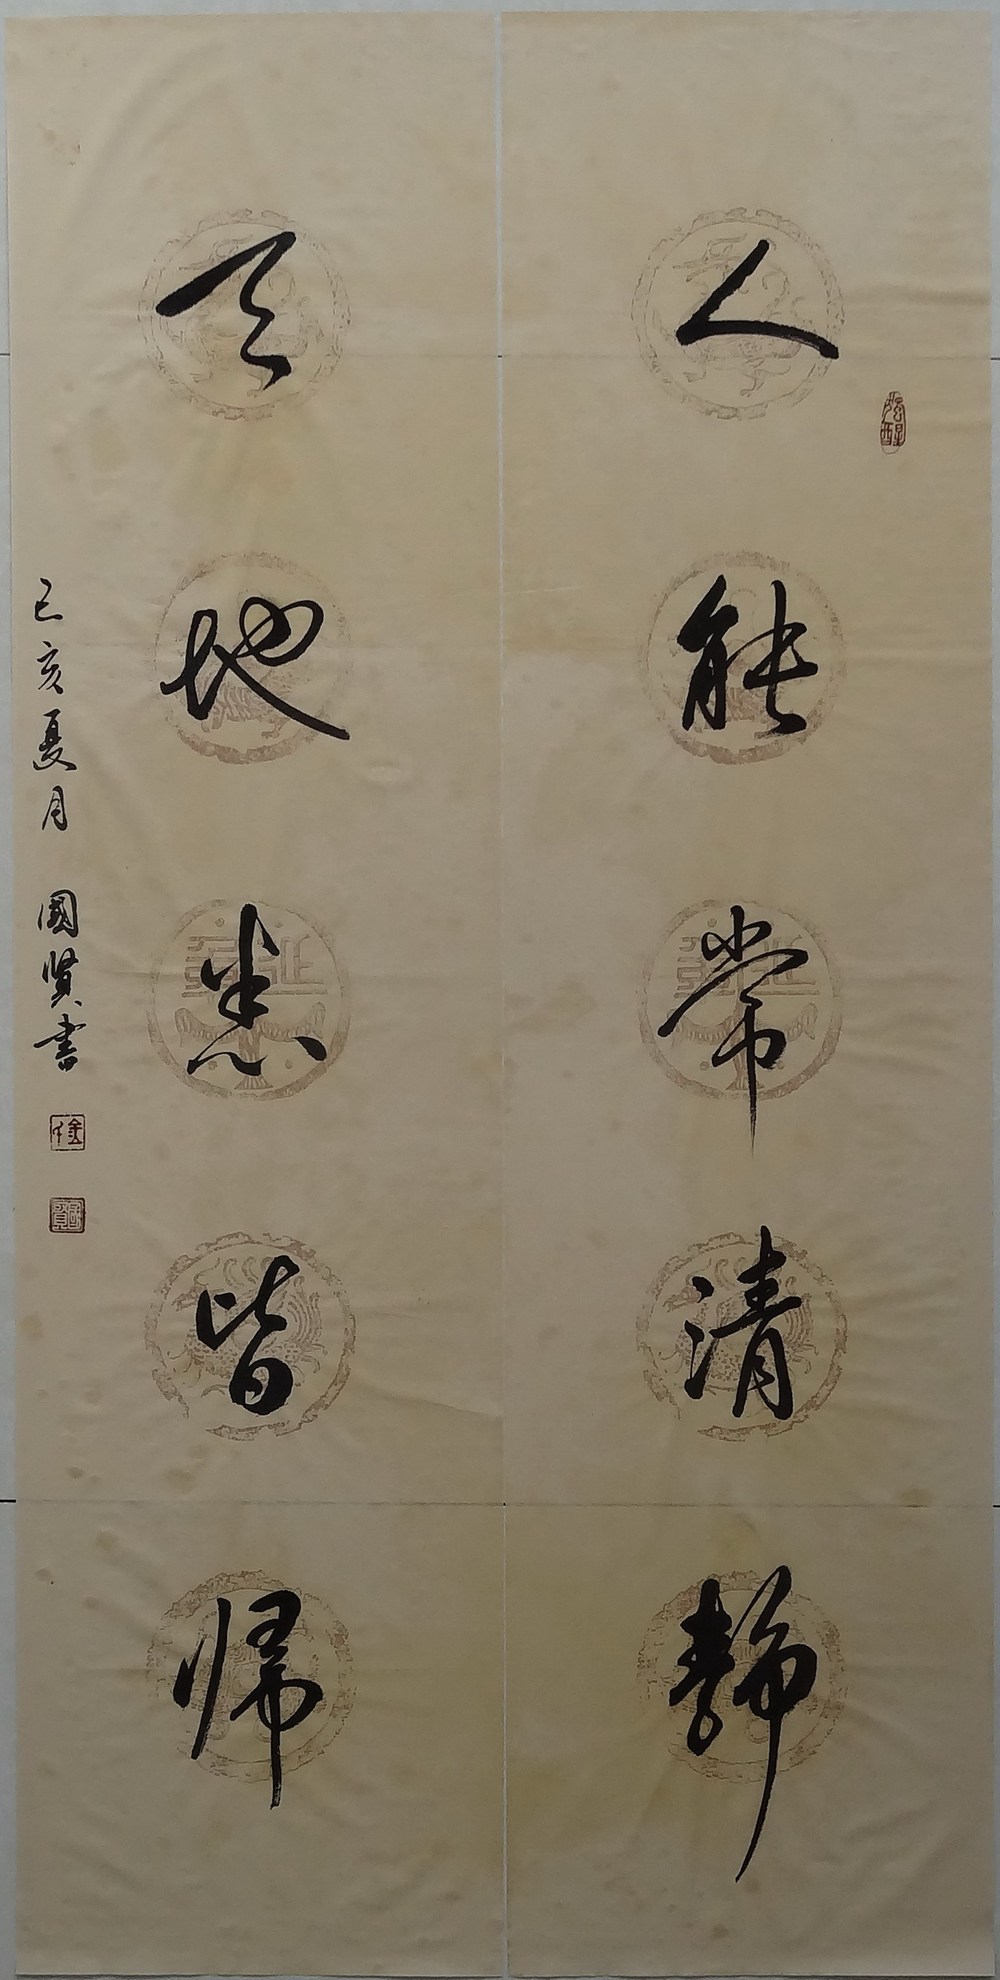 人能常清静
天地悉皆帰
己亥夏月 國贤書